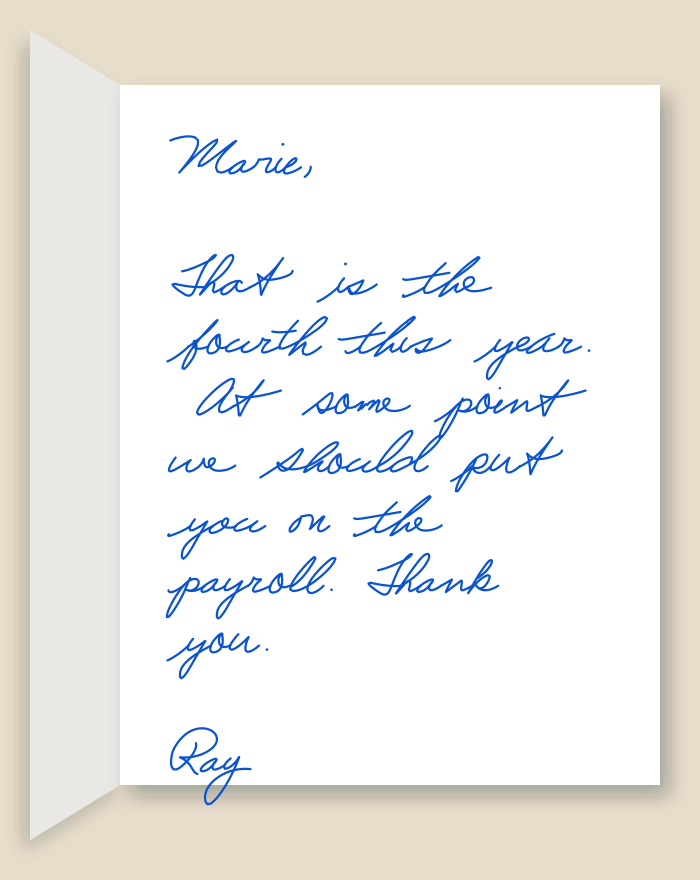 Marie,
That is the
fourth this year.
At some point
we should put
you on the
payroll. Thank
you.
Ray